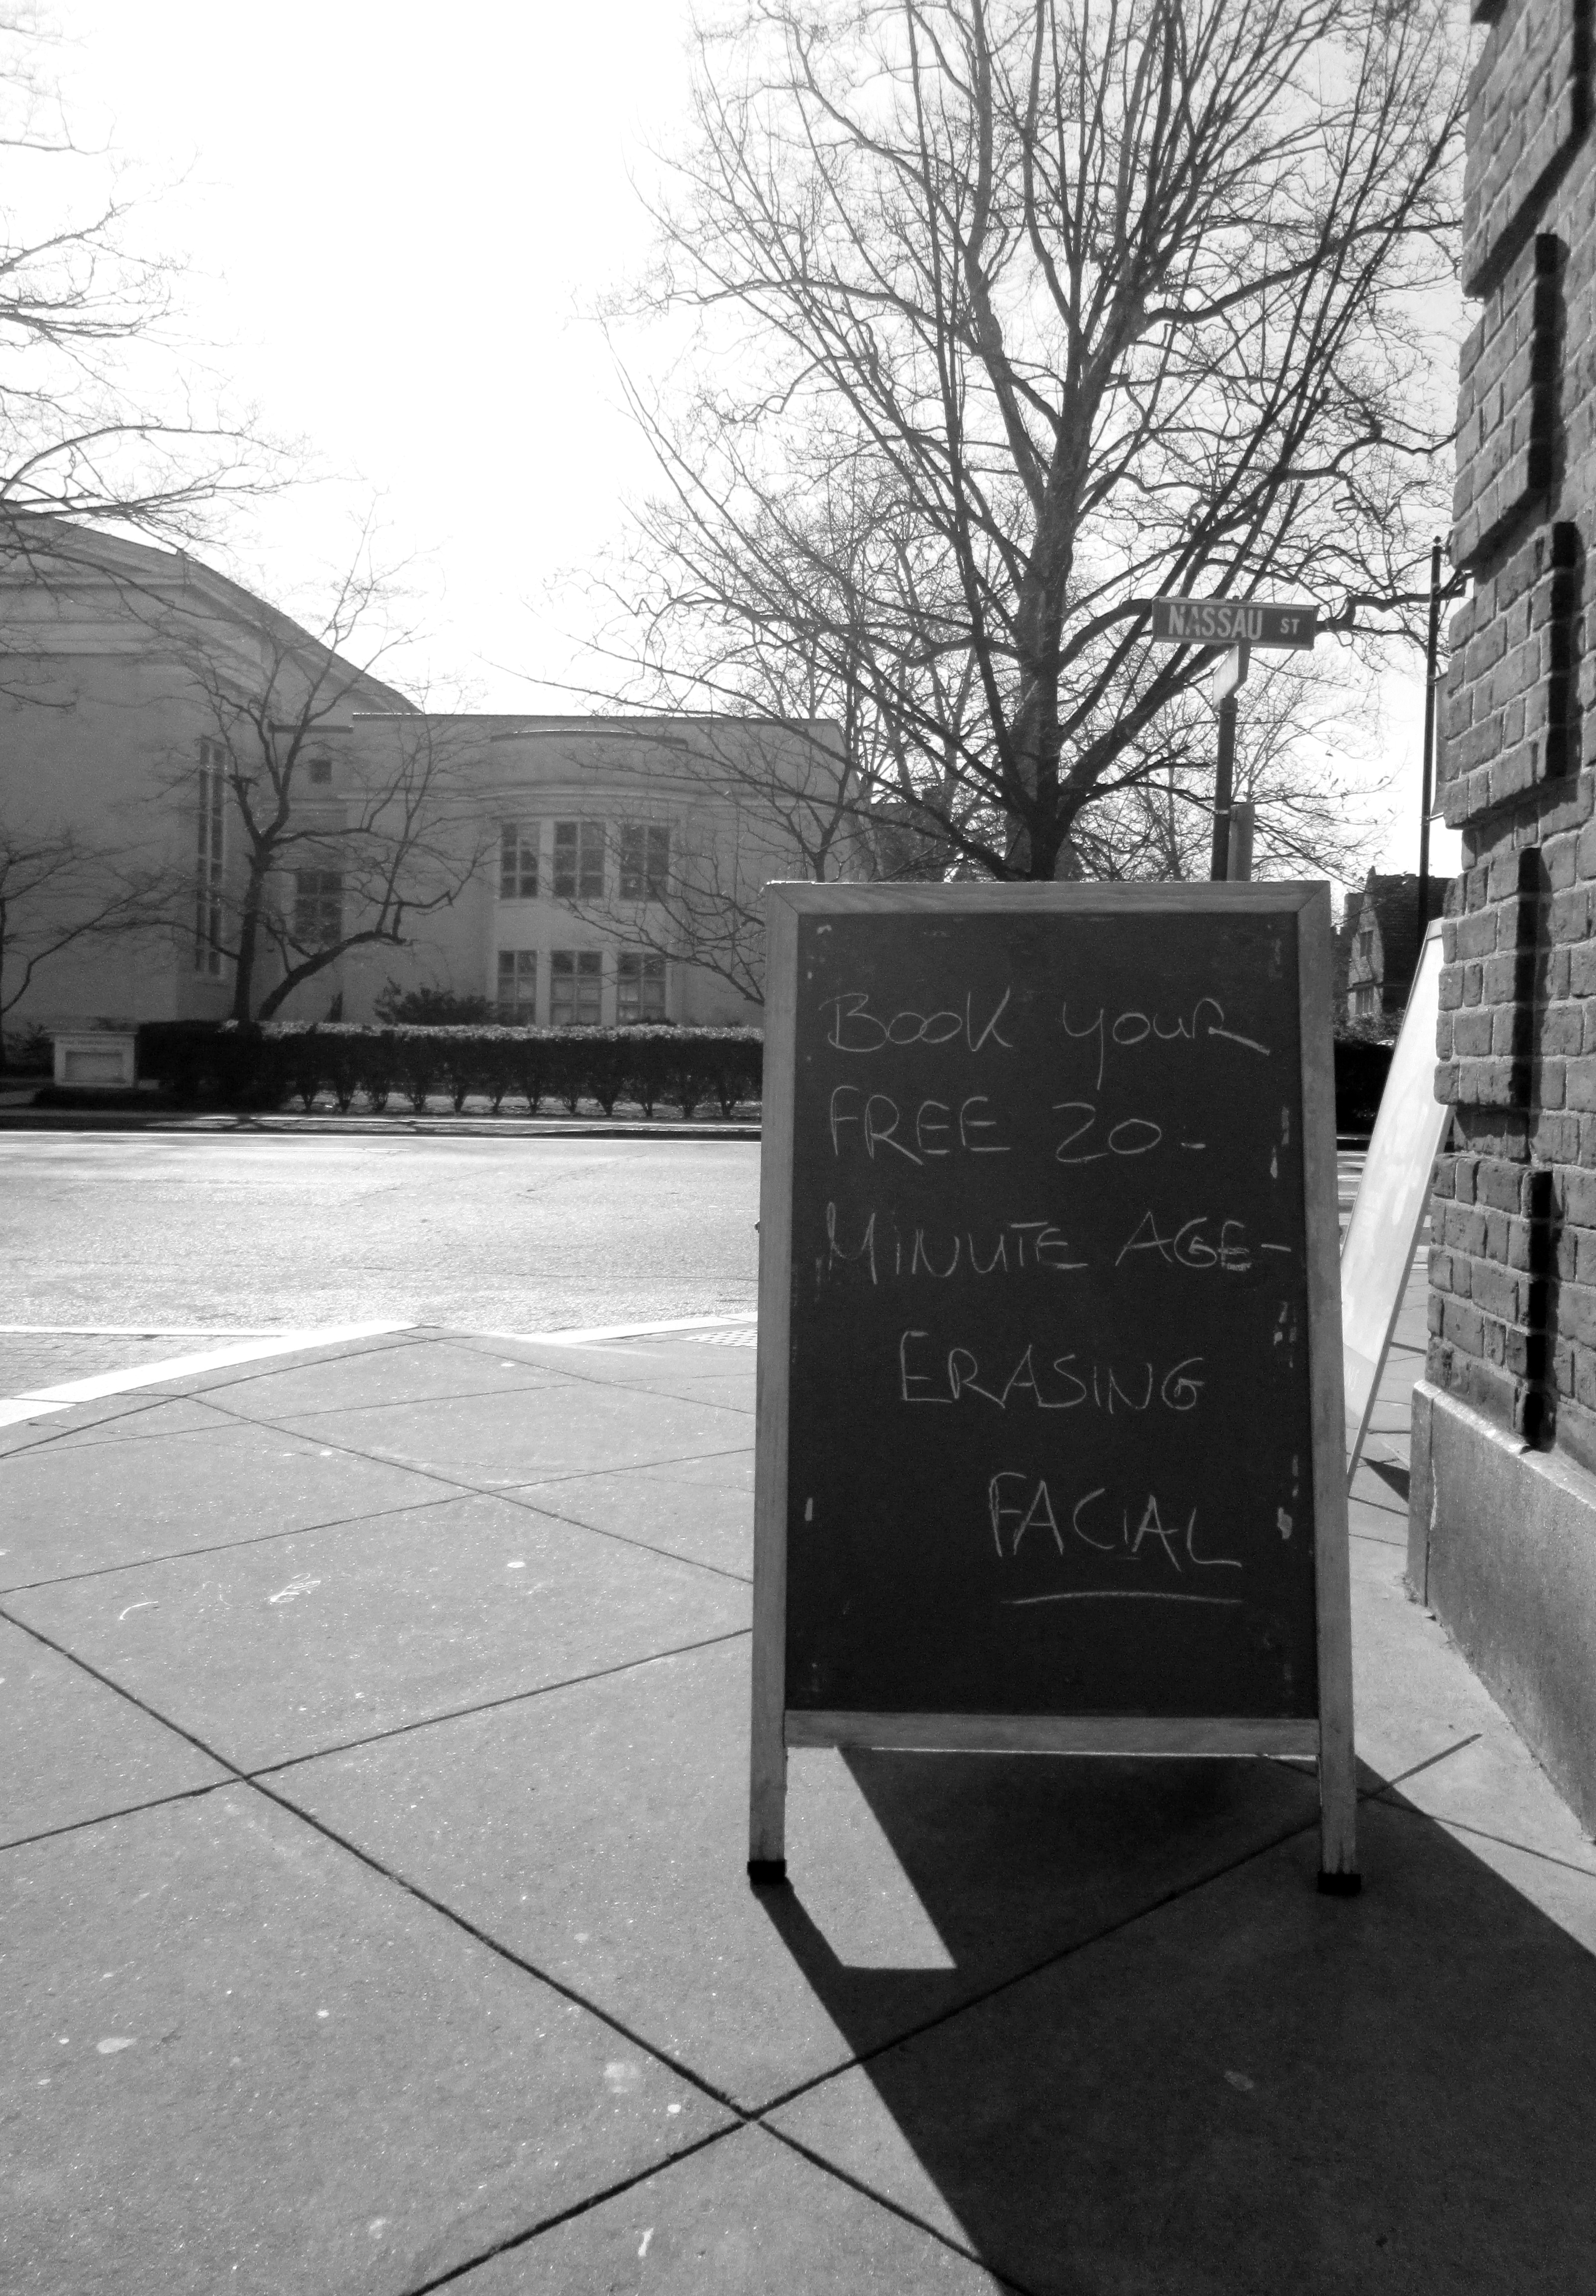 NASSAU ST
BOOK YOUR
FREE 20-
MINUTE AGE-
ERASING
FACIAL